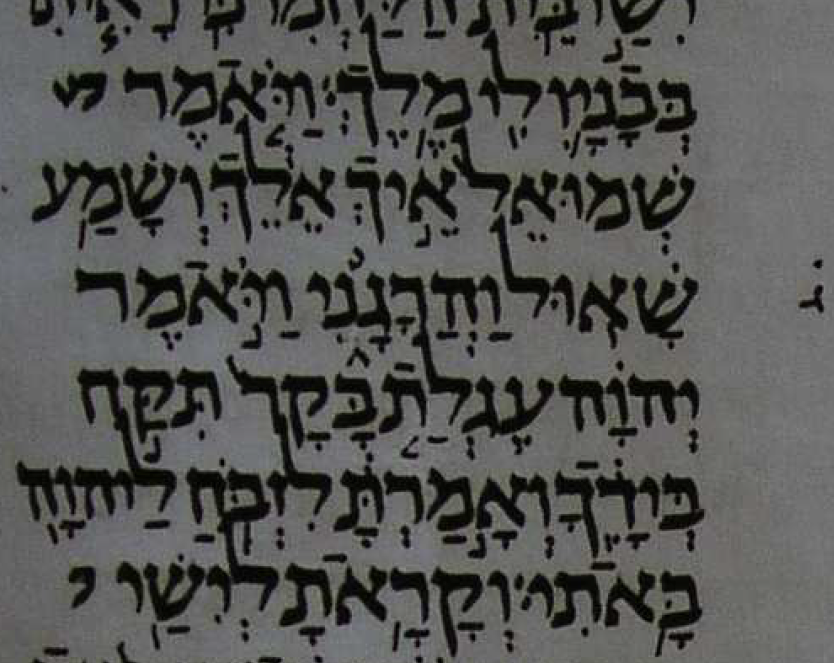 יִשַׁי בֵּית הַלַּחְמִי כִּי רָאִיתִי
בְּבָנָיו לִי מֶלֶךְ׃ וַיֹּאמֶר
שְׁמוּאֵל אֵיךְ אֵלֵךְ וְשָׁמַע
שָׁאוּל וַהֲרָגָנִי וַיֹּאמֶר
יְהוָה עֶגְלַת בָּקָר תִּקַּח
בְּיָדֶךָ וְאָמַרְתָּ לִזְבֹּחַ לַיהוָה
בָּאתִי׃ וְקָרָאתָ לְיִשַׁי
ג